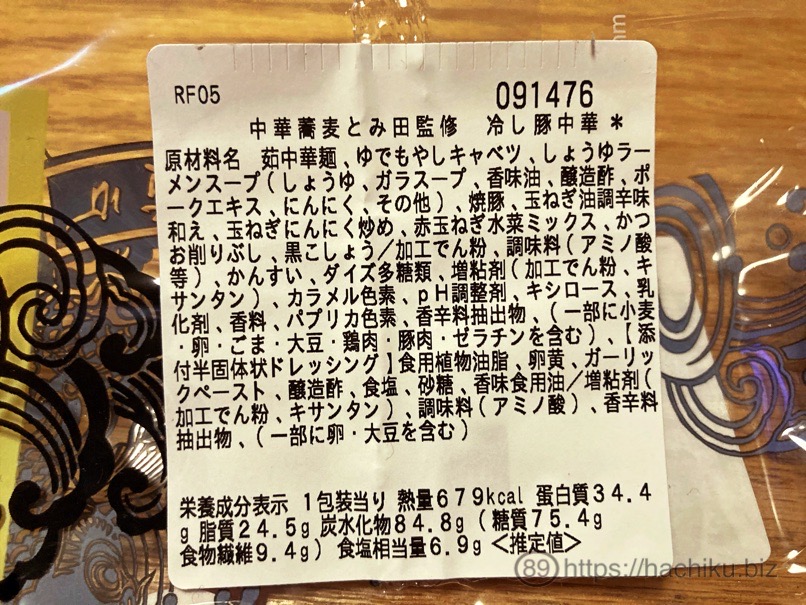 RF05
091476
中華蕎麦とみ田監修 冷し豚中華*
原材料名 茹中華麺、ゆでもやしキャベツ、しょうゆラー
メンスープ(しょうゆ、ガラスープ、香味油、醸造酢、ポ
ークエキス、にんにく、その他)、焼豚、玉ねぎ油調辛味
和え、玉ねぎにんにく炒め、赤玉ねぎ水菜ミックス、かつ
お削りぶし、黒こしょう/加工でん粉、調味料(アミノ酸
等)、かんすい、ダイズ多糖類、増粘剤(加工でん粉、キ
サンタン)、カラメル色素、pH調整剤、キシロース、乳
化剤、香料、パプリカ色素、香辛料抽出物、(一部に小麦
・卵・ごま・大豆・鶏肉・豚肉・ゼラチンを含む)、【添
付半固体状ドレッシング】食用植物油脂、卵黄、ガーリッ
クペースト、醸造酢、食塩、砂糖、香味食用油/増粘剤(
加工でん粉、キサンタン)、調味料(アミノ酸)、香辛料
抽出物、(一部に卵・大豆を含む)
栄養成分表示 1包装当り 熱量679kcal 蛋白質34.4
g 脂質24.5g 炭水化物84.8g(糖質75.4g
食物繊維9.4g) 食塩相当量6.9g <推定値>
89 https://hachiku.biz